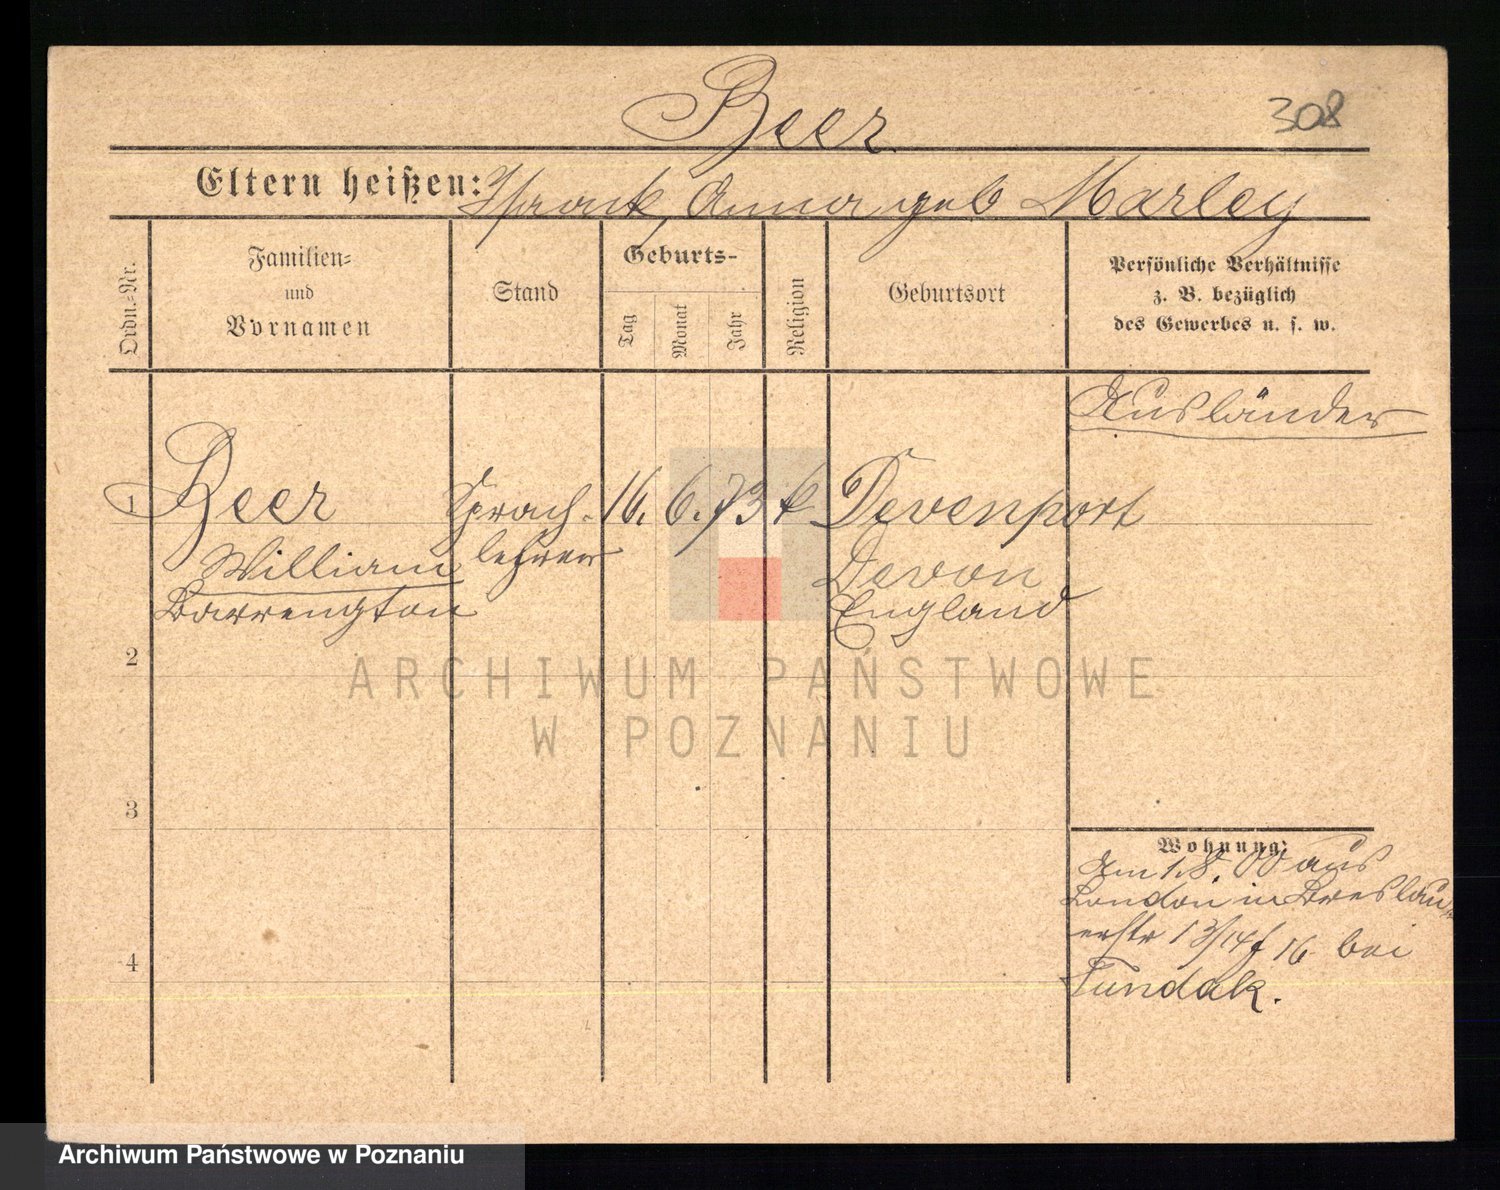 Beer
308
Eltern heißen: Frank, Anna geb Marley
Ordn.-Nr.
Familien-
und
Vornamen
Stand
Geburts-
Tag
Monat
Jahr
Religion
Geburtsort
Persönliche Verhältnisse
z. B. bezüglich
des Gewerbes u. s. w.
Ausländer
1 Beer Sprach- 16. 6. 73 k Devenport
William lehrer Devon
Barrengton England
2
3
4
Wohnung:
Am 1.8.00 aus
London in Breslau
erstr 13/14 16 bei
Tundak.
ARCHIWUM PAŃSTWOWE
W POZNANIU
Archiwum Państwowe w Poznaniu